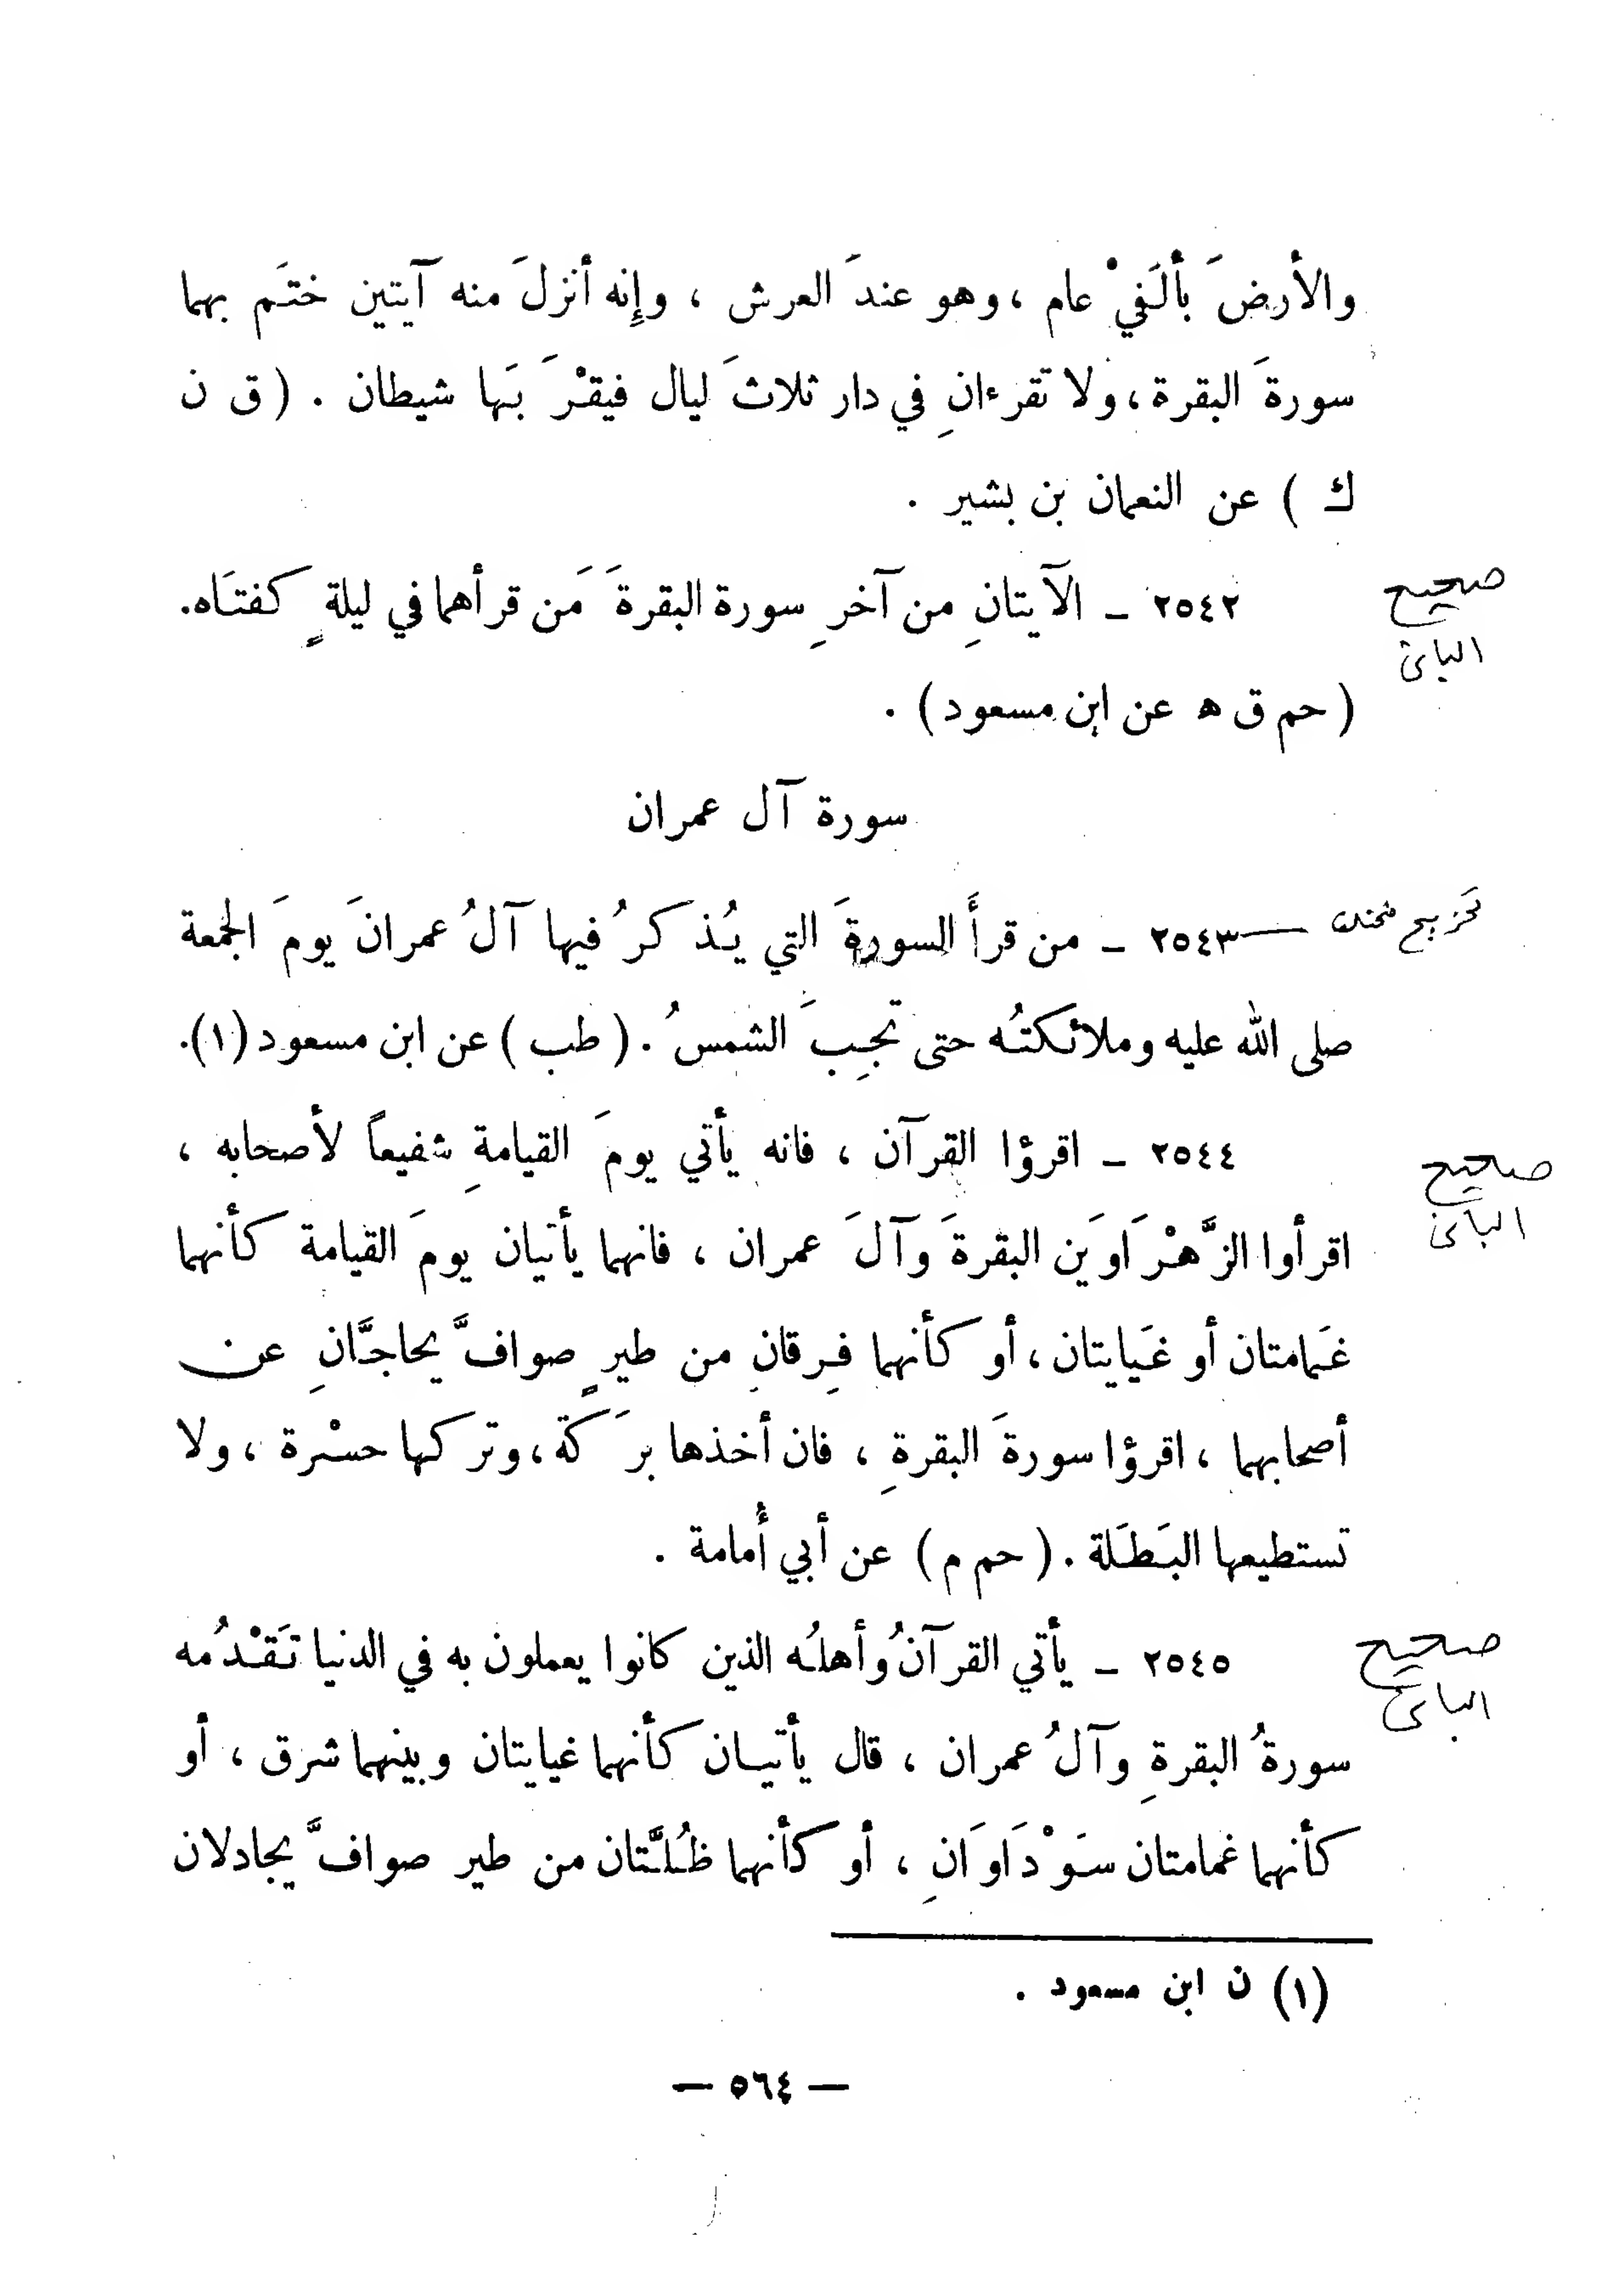 والأرضَ بألَفيْ عام ، وهو عندَ العرش ، وإِنه أنزلَ منه آيتين ختَم بهما
سورةَ البقرة ، ولا تقرءانِ في دار ثلاثَ ليال فيقْرَ بَها شيطان . ( ق ن
ك ) عن النعمان بن بشير .
صحيح
٢٥٤٢ ـ الآيتانِ من آخرِ سورة البقرةَ مَن قرأهما في ليلةٍ كفتَاه.
( حم ق ه عن ابن مسعود ) .
سورة آل عمران
٢٥٤٣ ـ من قرأَ السورةَ التي يُذكرُ فيها آلُ عمرانَ يومَ الجمعة
صلى الله عليه وملائكتُه حتى تجِبَ الشمسُ . ( طب ) عن ابن مسعود (١).
٢٥٤٤ ـ اقرؤا القرآن ، فانه يأتي يومَ القيامةِ شفيعاً لأصحابه ،
صحيح
اقرأوا الزَّهْرَاوَين البقرةَ وآلَ عمران ، فانهما يأتيان يومَ القيامة كأنهما
غَمامتان أو غَيايتان ، أو كأنهما فِرقانِ من طيرٍ صوافَّ يحاجَّانِ عن
أصحابهما ، اقرؤا سورةَ البقرةِ ، فان أخذها برَكة ، وتركها حسْرة ، ولا
تستطيعها البَطَلة . ( حم م ) عن أبي أُمامة .
٢٥٤٥ ـ يأتي القرآنُ وأهلُه الذين كانوا يعملون به في الدنيا تَقْدُمه
صحيح
سورةُ البقرةِ وآلُ عمران ، قال يأتيان كأنهما غيايتان وبينهما شرق ، أو
كأنهما غمامتان سَوْدَاوَانِ ، أو كأنهما ظُلَّتان من طير صوافَّ يجادلان
(١) ن ابن مسعود .
— ٥٦٤ —